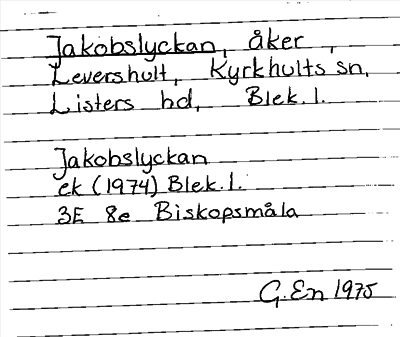 Jakobslyckan, åker,
Levershult, Kyrkhults sn,
Listers hd, Blek. l.
Jakobslyckan
ek (1974) Blek. l.
3E 8e Biskopsmåla
G. En 1975